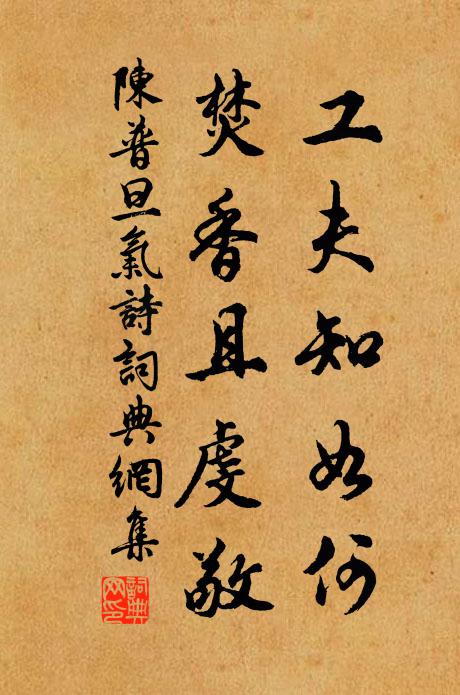 工夫知如何
焚香且虔敬
陳普旦氣詩詞典網集
詞典网印